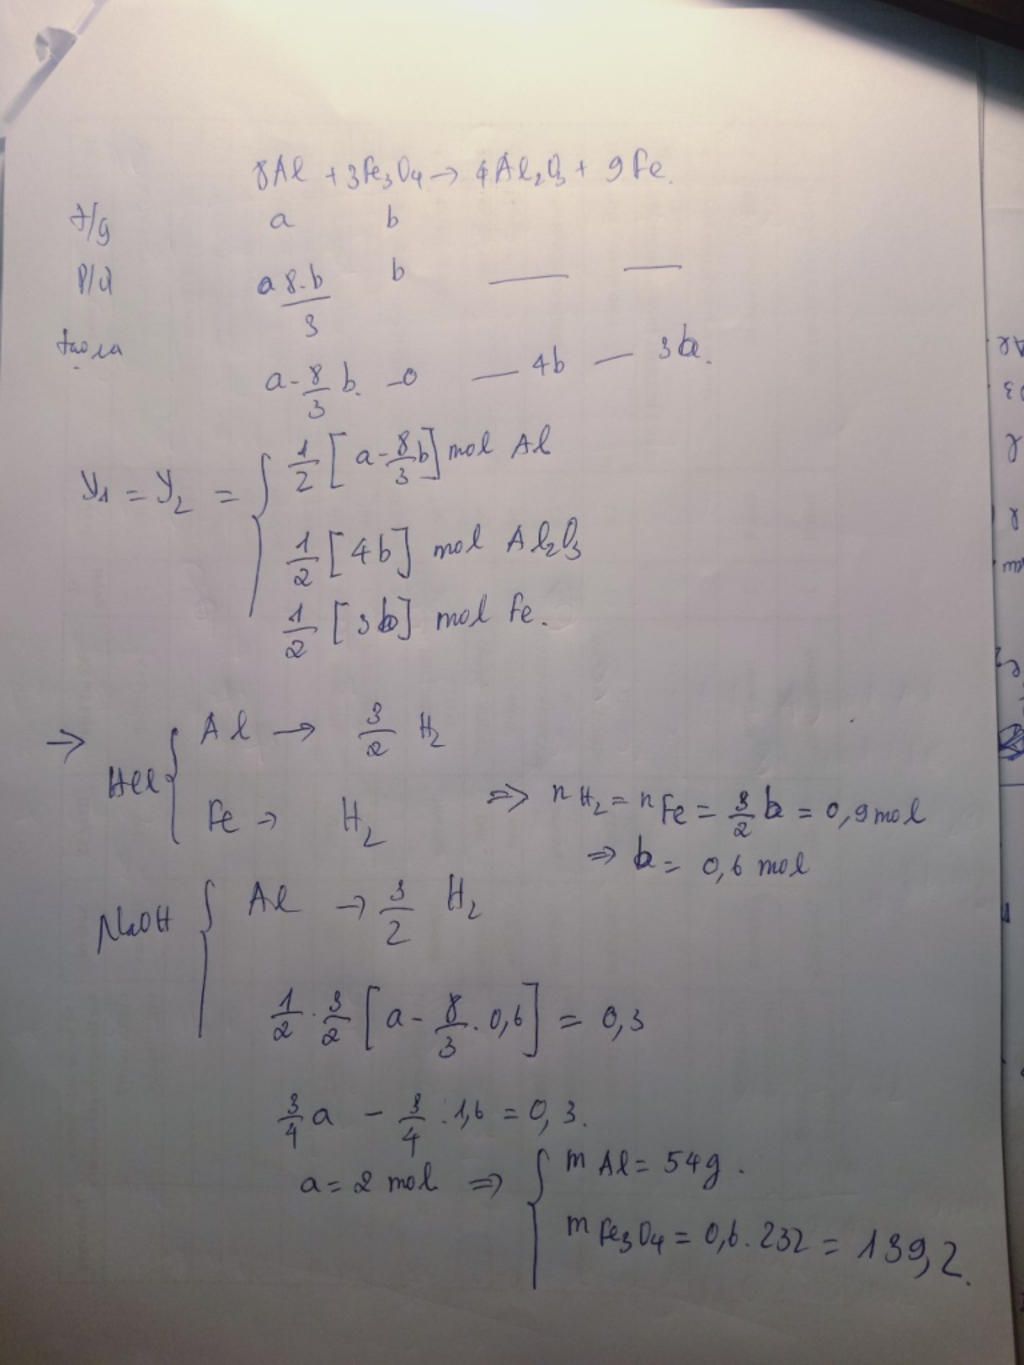 8Al + 3Fe3O4 → 4Al2O3 + 9Fe.
T/g a b
P/ứ 8.b/3 b — —
tạo ra a - 8/3 b. - 0 — 4b — 3b.
Y1 = Y2 = { 1/2 [a - 8/3 b] mol Al
1/2 [4b] mol Al2O3
1/2 [3b] mol Fe.
⇒ HCl { Al → 3/2 H2
Fe → H2 ⇒ nH2 = nFe = 3/2 b = 0,9 mol
⇒ b = 0,6 mol
NaOH { Al → 3/2 H2
1/2 . 3/2 [a - 8/3 . 0,6] = 0,3
3/4 a - 3/4 . 1,6 = 0,3.
a = 2 mol ⇒ { m Al = 54g.
m Fe3O4 = 0,6 . 232 = 139,2.